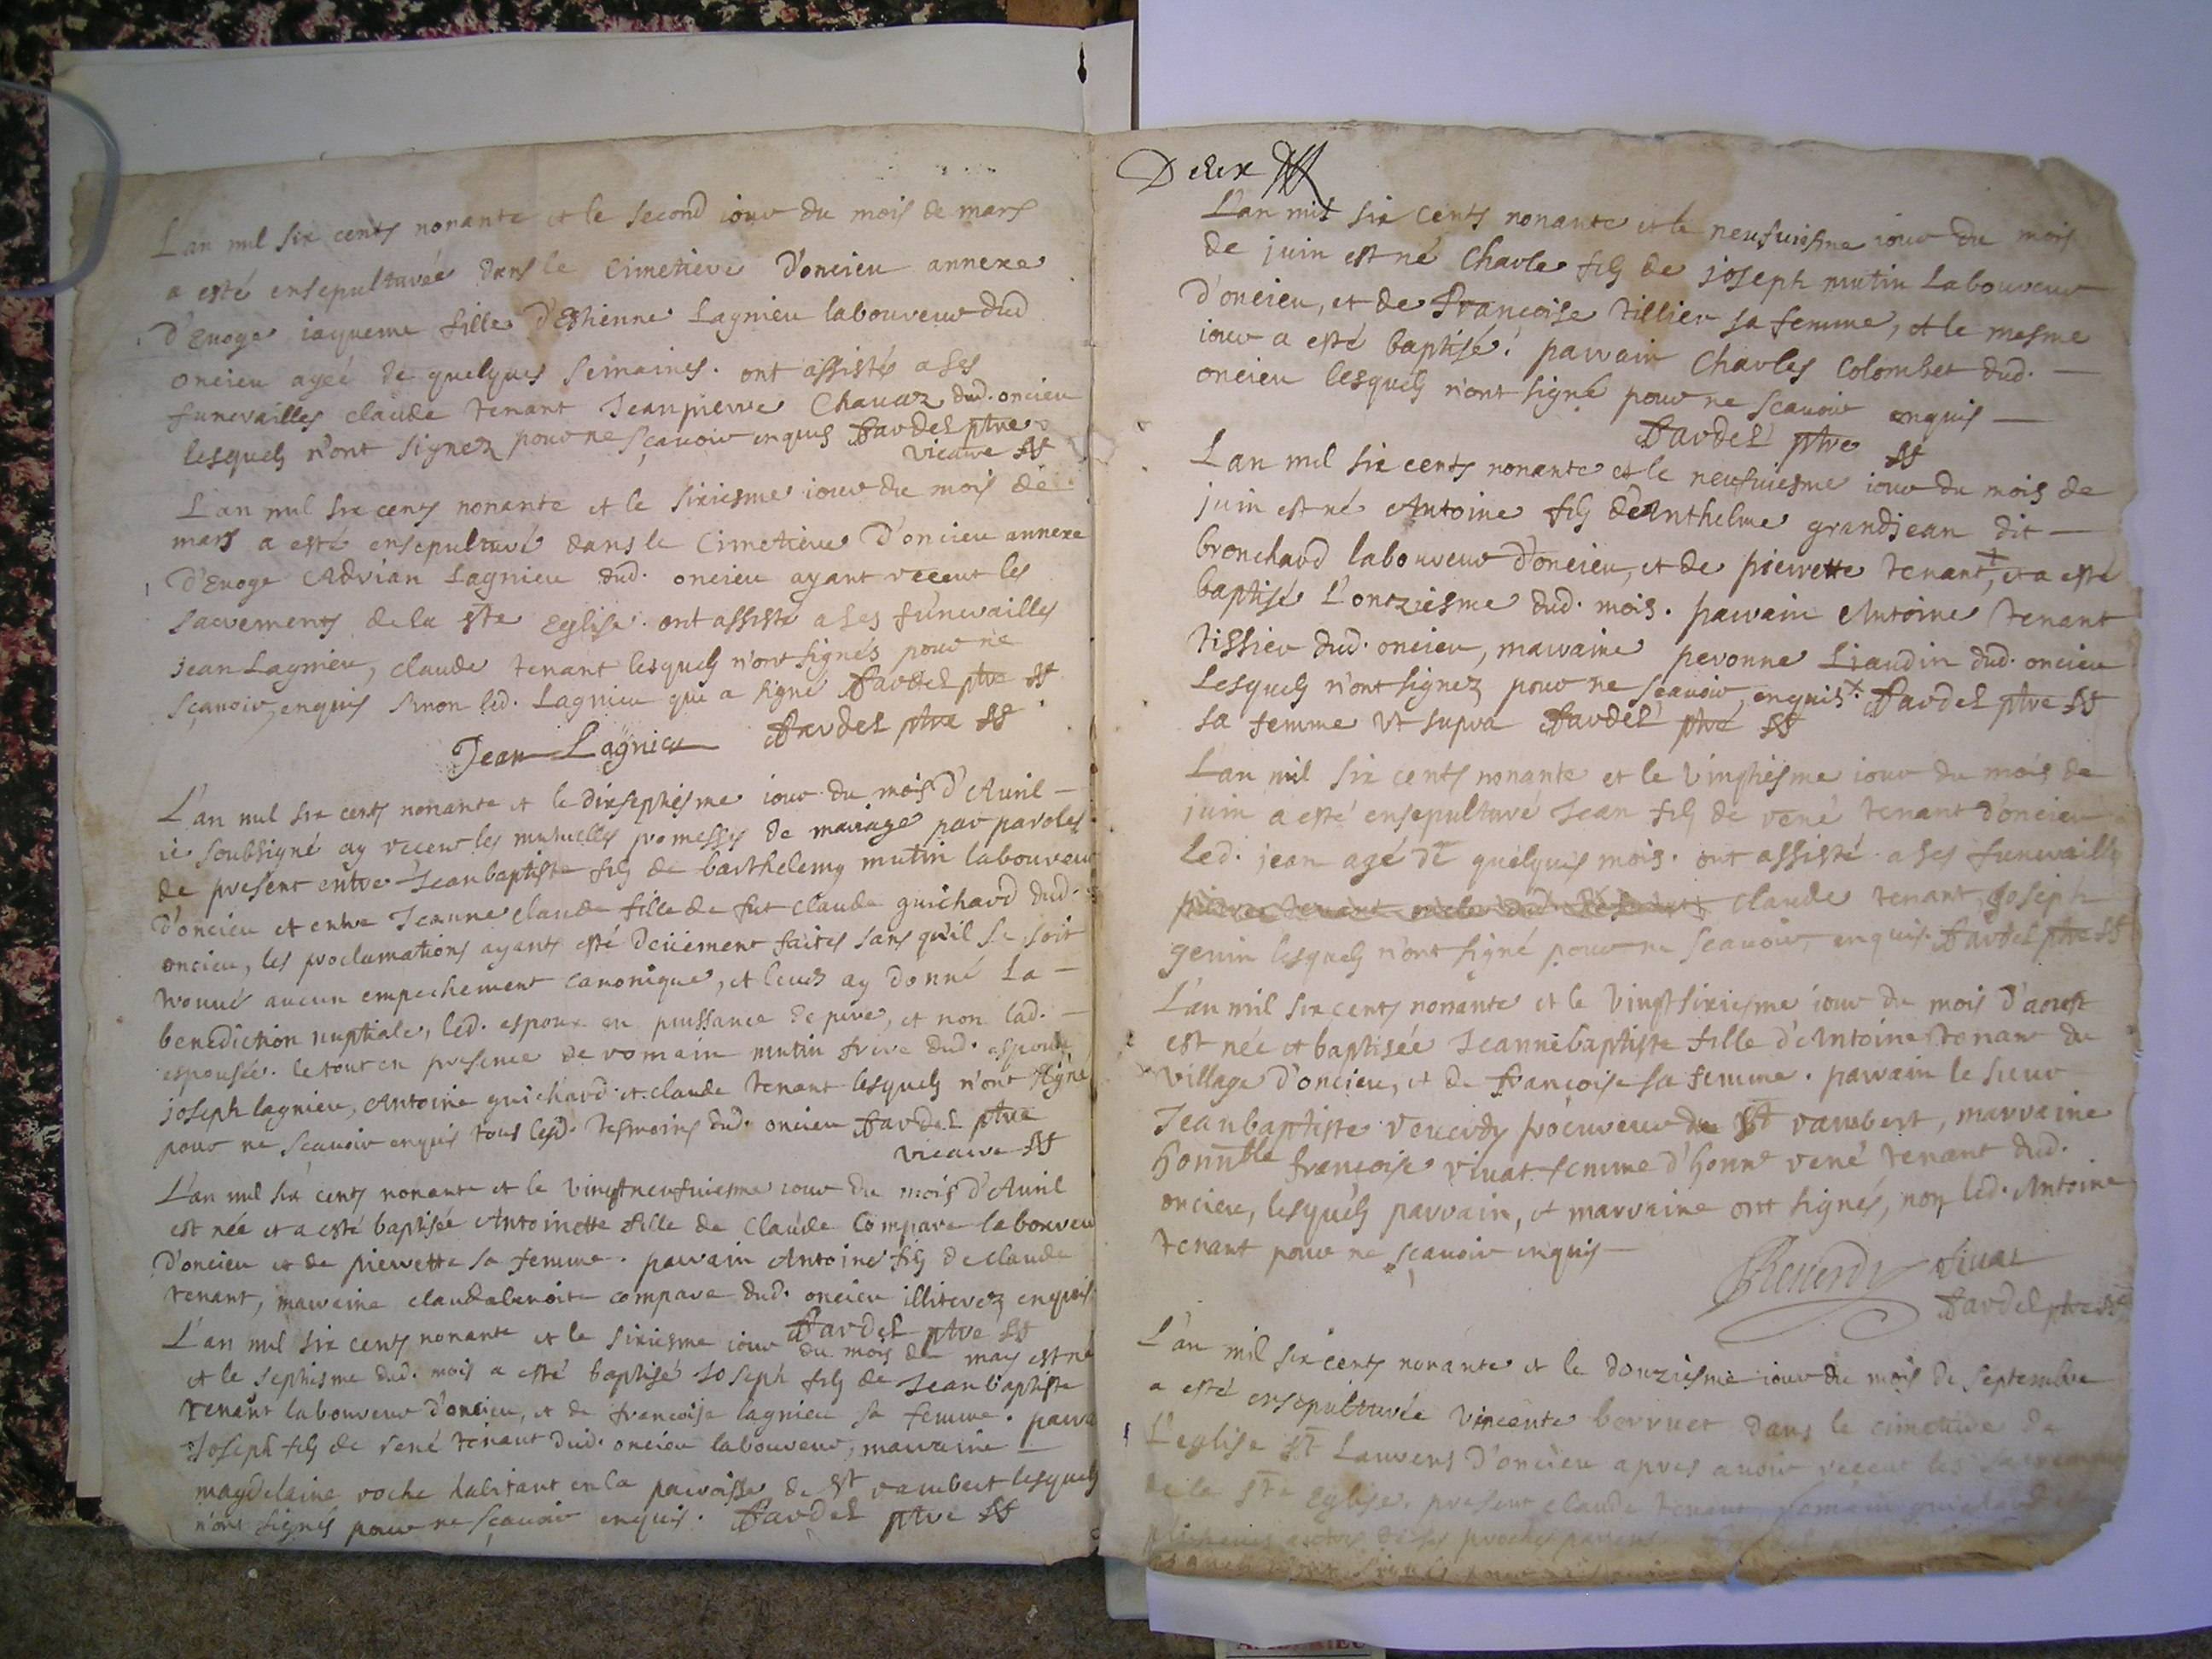 L'an mil six cents nonante et le second iour du mois de mars
a esté ensepulturée dans le Cimetiere d'oncieu annexe
d'Evoge iaqueme fille d'Estienne Lagnieu laboureur dud
oncieu agée de quelques semaines. ont assisté a ses
funerailles claude tenant Jeanpierre Chavaz dud. oncieu
lesquels n'ont signez pour ne sçavoir enquis Fardel ptre
vicaire
L'an mil six cents nonante et le sixiesme iour du mois de
mars a esté ensepulturé dans le Cimetiere d'oncieu annexe
d'Evoge Adrian Lagnieu dud. oncieu ayant receut les
sacrements de la ste Eglise. ont assisté a ses funerailles
jean Lagnieu, claude tenant lesquels n'ont signés pour ne
sçavoir, enquis sinon led. Lagnieu qui a signé Fardel ptre
Jean Lagnieu Fardel ptre
L'an mil six cents nonante et le dixseptiesme iour du mois d'Avril —
ie soubsigné ay receut les mutuelles promesses de mariage par paroles
de present entre Jeanbaptiste fils de barthelemy mutin laboureur
d'oncieu et entre Jeanne claude fille de fut claude guichard dud.
oncieu, les proclamations ayants esté deüement faites sans qu'il se soit
trouvé aucun empechement canonique, et leurs ay donné la —
benediction nuptiale, led. espoux en puissance de pere, et non lad. —
espousée. le tout en presence de romain mutin frere dud. espoux
joseph lagnieu, Antoine guichard et claude tenant lesquels n'ont signé
pour ne sçavoir enquis tous lesd. tesmoins dud. oncieu Fardel ptre
vicaire
L'an mil six cents nonante et le vingtneufuiesme iour du mois d'Avril
est née et a esté baptisée Antoinette fille de Claude Compare laboureu
d'oncieu et de pierrette sa femme. parrain Antoine fils de claude
tenant, marraine claudabenoite compare dud. oncieu illiterez enquis.
Fardel ptre
L'an mil six cents nonante et le sixiesme iour du mois de may est né
et le septiesme dud. mois a esté baptisé Joseph fils de Jeanbaptiste
tenant laboureur d'oncieu, et de francoise lagnieu sa femme. parra
Joseph fils de rené tenant dud. oncieu laboureur, marraine —
magdelaine roche habitant en la parroisse de st rambert lesquels
n'ont signés pour ne sçavoir enquis. Fardel ptre
Deux
L'an mil six cents nonante et le neufuiesme iour du mois
de juin est né Charle fils de joseph mutin Laboureur
d'oncieu, et de Françoise tillier sa femme, et le mesme
iour a esté baptisé. parrain Charles Colombet dud. —
oncieu lesquels n'ont signé pour ne scavoir enquis —
Fardel ptre
L'an mil six cents nonante et le neufuiesme iour du mois de
juin est né Antoine fils d'Anthelme grandjean dit —
bronchard laboureur d'oncieu, et de pierrette tenant,+ et a esté
baptisé L'onziesme dud. mois. parrain Antoine tenant
tissier dud. oncieu, marraine peronne Liaudin dud. oncieu
Lesquels n'ont signez pour ne scavoir, enquis.+ Fardel ptre
sa femme ut supra Fardel ptre
L'an mil six cents nonante et le vingtiesme iour du mois de
juin a esté ensepulturé Jean fils de rené tenant d'oncieu
Led. jean agé de quelques mois. ont assisté a ses funerailles
pierre tenant oncle dud. claude tenant, Joseph
genin lesquels n'ont signé pour ne scavoir, enquis. Fardel ptre
L'an mil six cents nonante et le vingtsixiesme iour du mois d'aoust
est née et baptisée Jeannebaptiste fille d'Antoine tenant du
village d'oncieu, et de françoise sa femme. parrain le sieur
Jeanbaptiste reverdy procureur de St rambert, marraine
honnble françoise vivat femme d'honne rené tenant dud.
oncieu, lesquels parrain, et marraine ont signés, non led. Antoine
tenant pour ne sçavoir enquis —
Reverdy Vivat
Fardel ptre
L'an mil six cents nonante et le douziesme iour du mois de Septembre
a esté ensepulturée Vincente berruet dans le cimetiere de
L'eglise St Laurens d'oncieu apres avoir receut les sacrements
de la Ste Eglise. present claude tenant romain guichard
plusieurs autres de ses proches parens
lesquels n'ont signés pour ne scavoir